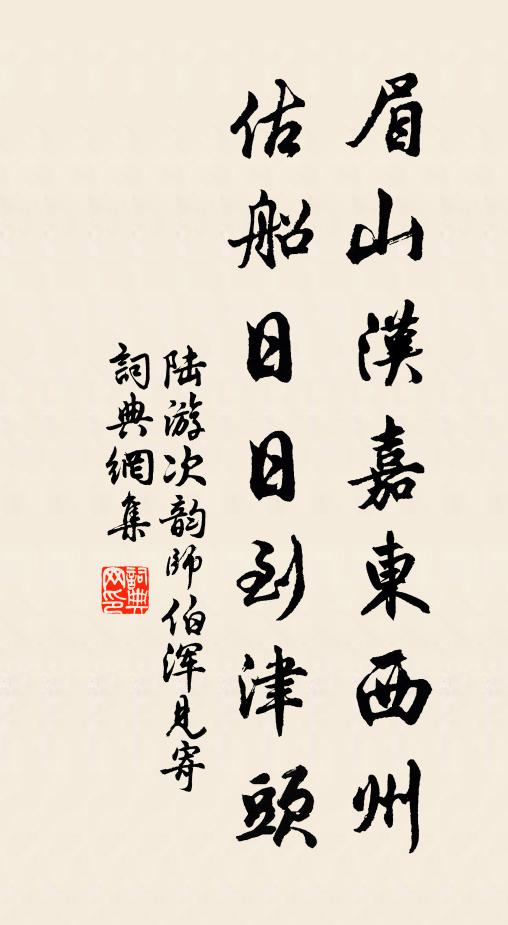 眉山漢嘉東西州
估船日日到津頭
陆游次韵師伯渾見寄
詞典網集
詞典網印